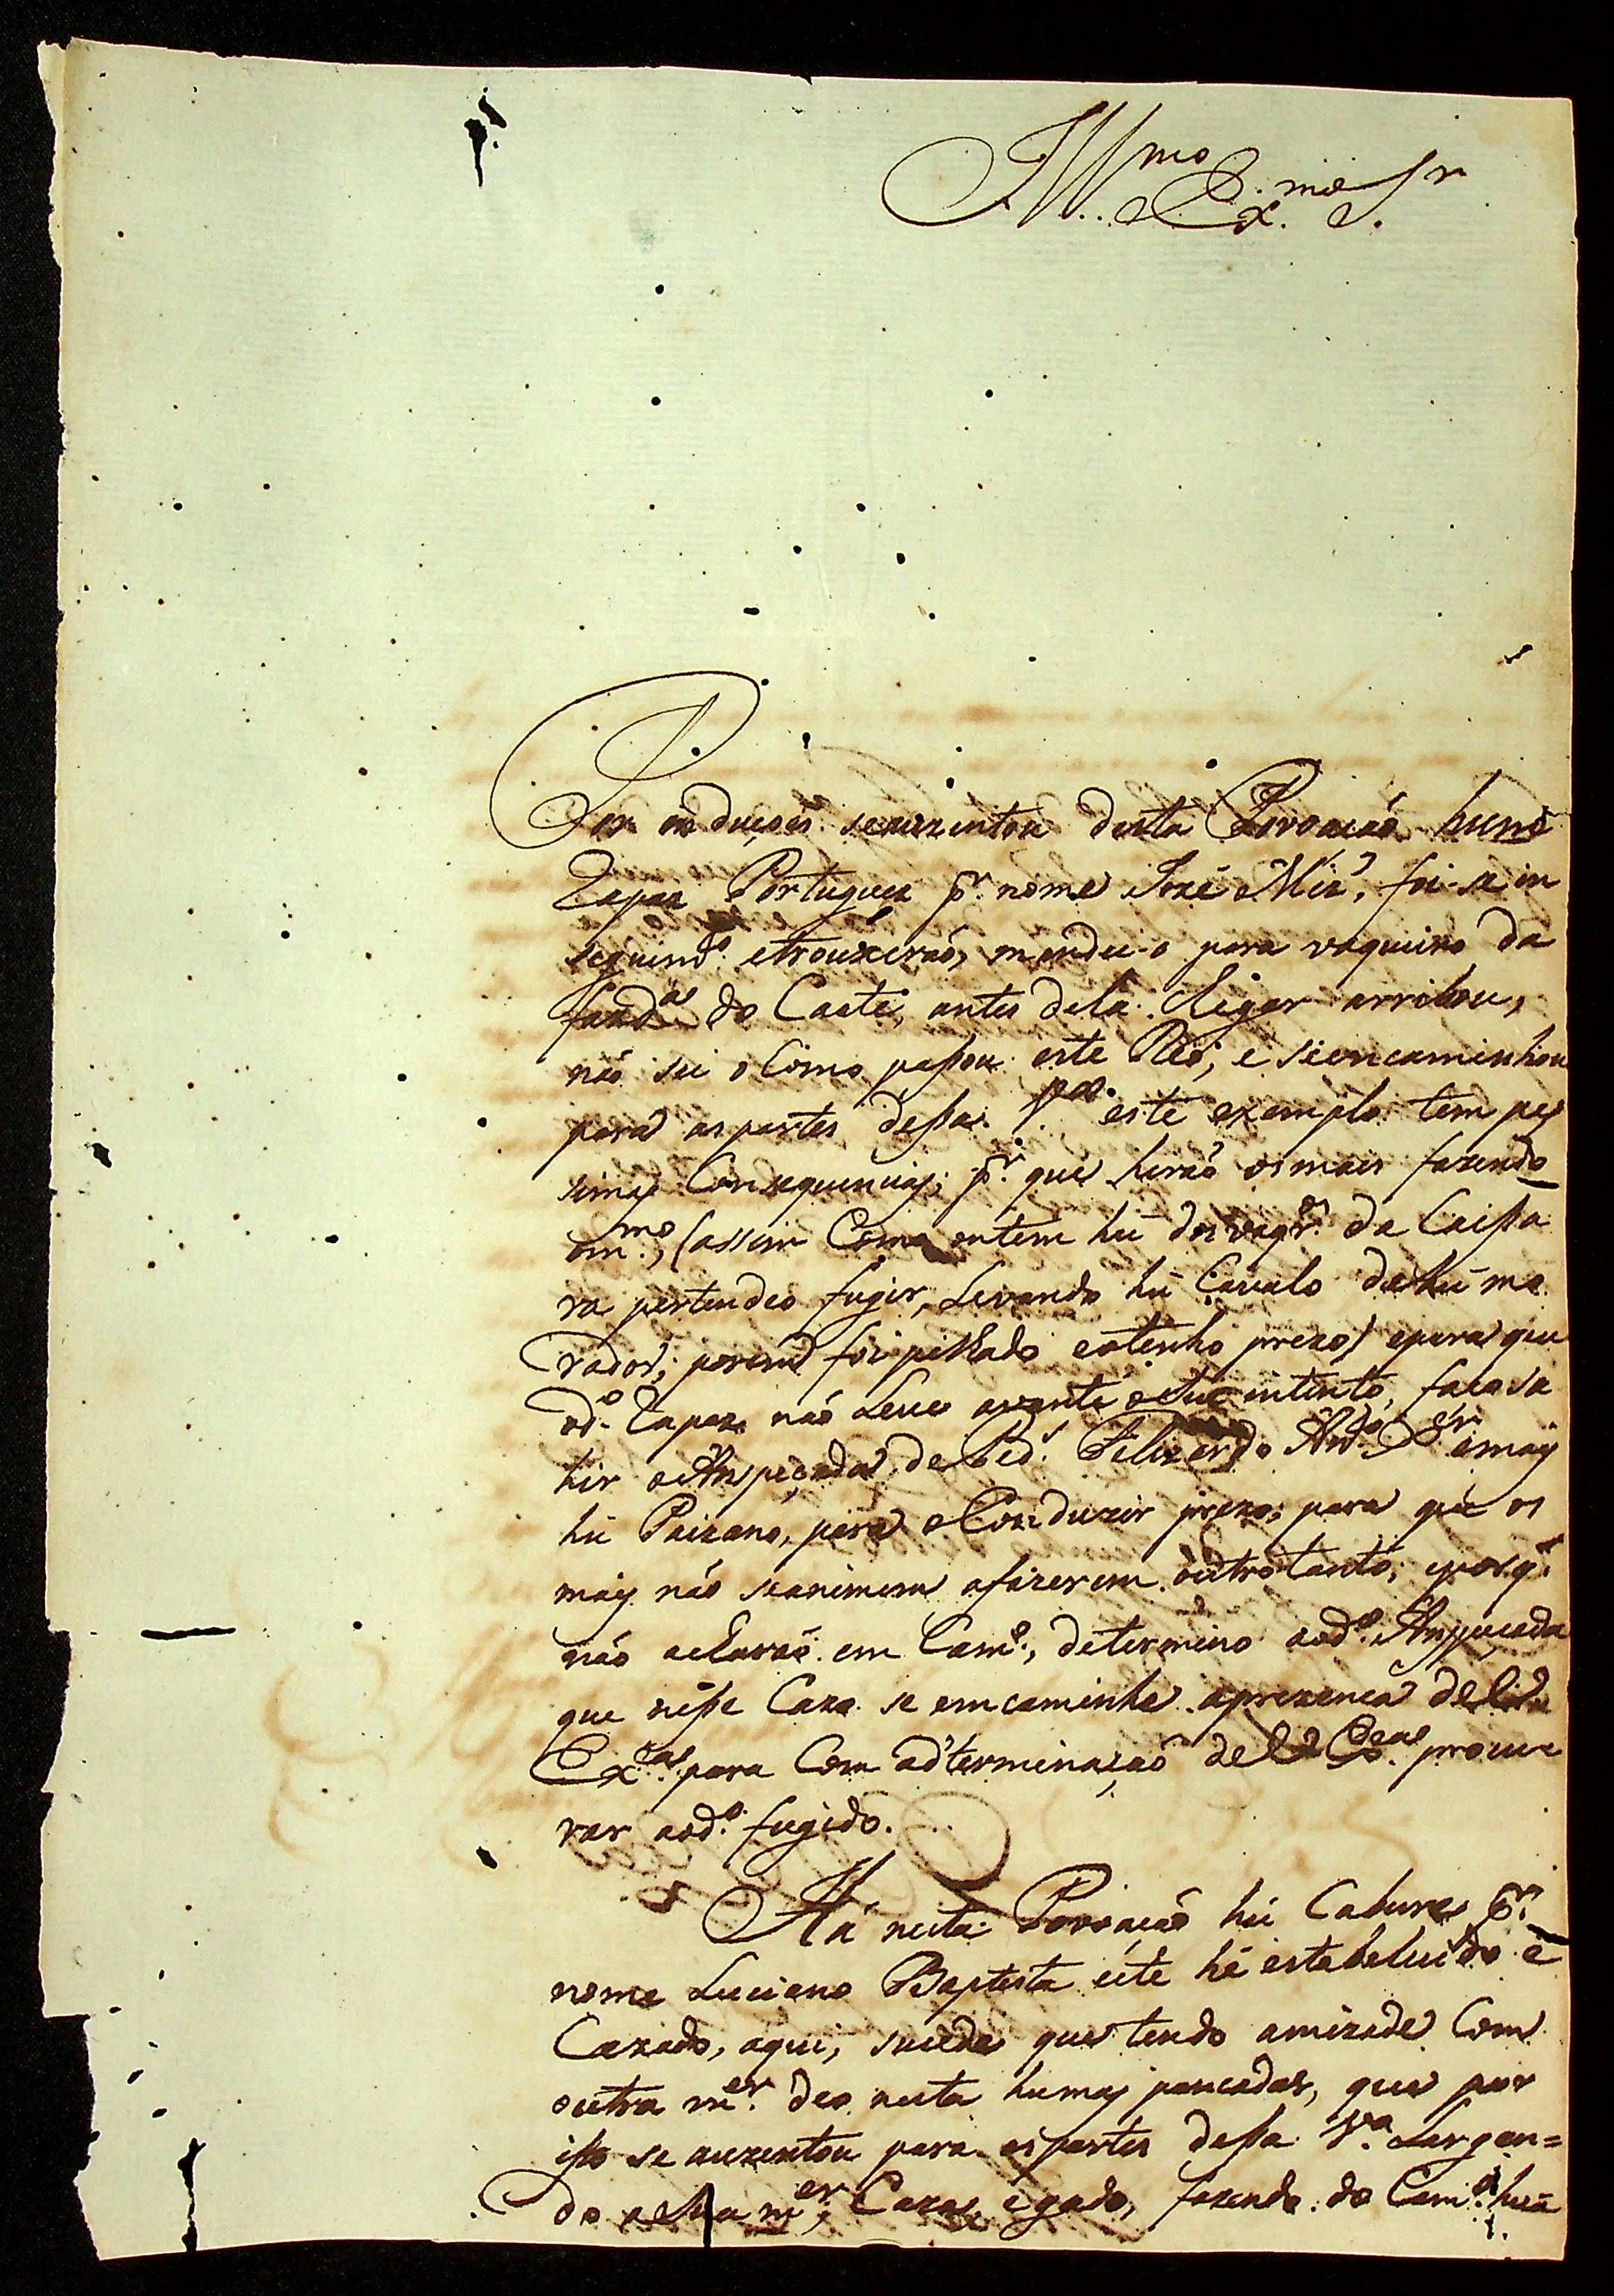 Illmo. e Exmo. Sr.
Por induçoés seauzentou desta Povoacaó hum
Rapaz Portuguez pr. nome Jozé Miz', foi-se in
seguimdo. etrouxeraó, mandei-o para vaqueiro da
fazda. do Caeté, antes dela xegar arribou,
náo sei o Como paßou este Rió, e seencaminhou
para as partes deßa Va. este exemplo tem pes
simas Consequencias; pr. que hiráo os mais fazendo
omo., (assim Como ontem hú dos vaqros. da Caißa
ra pertendeo fugir, Levando hú Cavalo de hú mo
rador; porem foi pilhado eotenho prezo) epara que
od.o Rapaz náo Leve avante oSeu intento, faco sa
hir oAnspeçada de Ped. Felizardo Ando. emais
hú Paizano, para oConduzir prezo; para que os
mais náo seanimem afazerem outrotanto; epos q.
náo acharáo em Camo., determino aodo. Anspecada
que neße Cazo se emcaminhe aprezenca de V.
Exa. para Com adterminaçaó de V. Exa. procu
rar aodo. fugido.
Há nesta Povoacáo hú Cabure pr.
nome Luciano Baptista este hé estabelecido e
Cazado, aqui, sucede que tendo amizade Com
outra mer. deo nesta humas pancadas, que por
ißo se auzentou para as partes deßa Va. Largan=
do aSua mer., Caza, egado, fazendo do Camo. huã